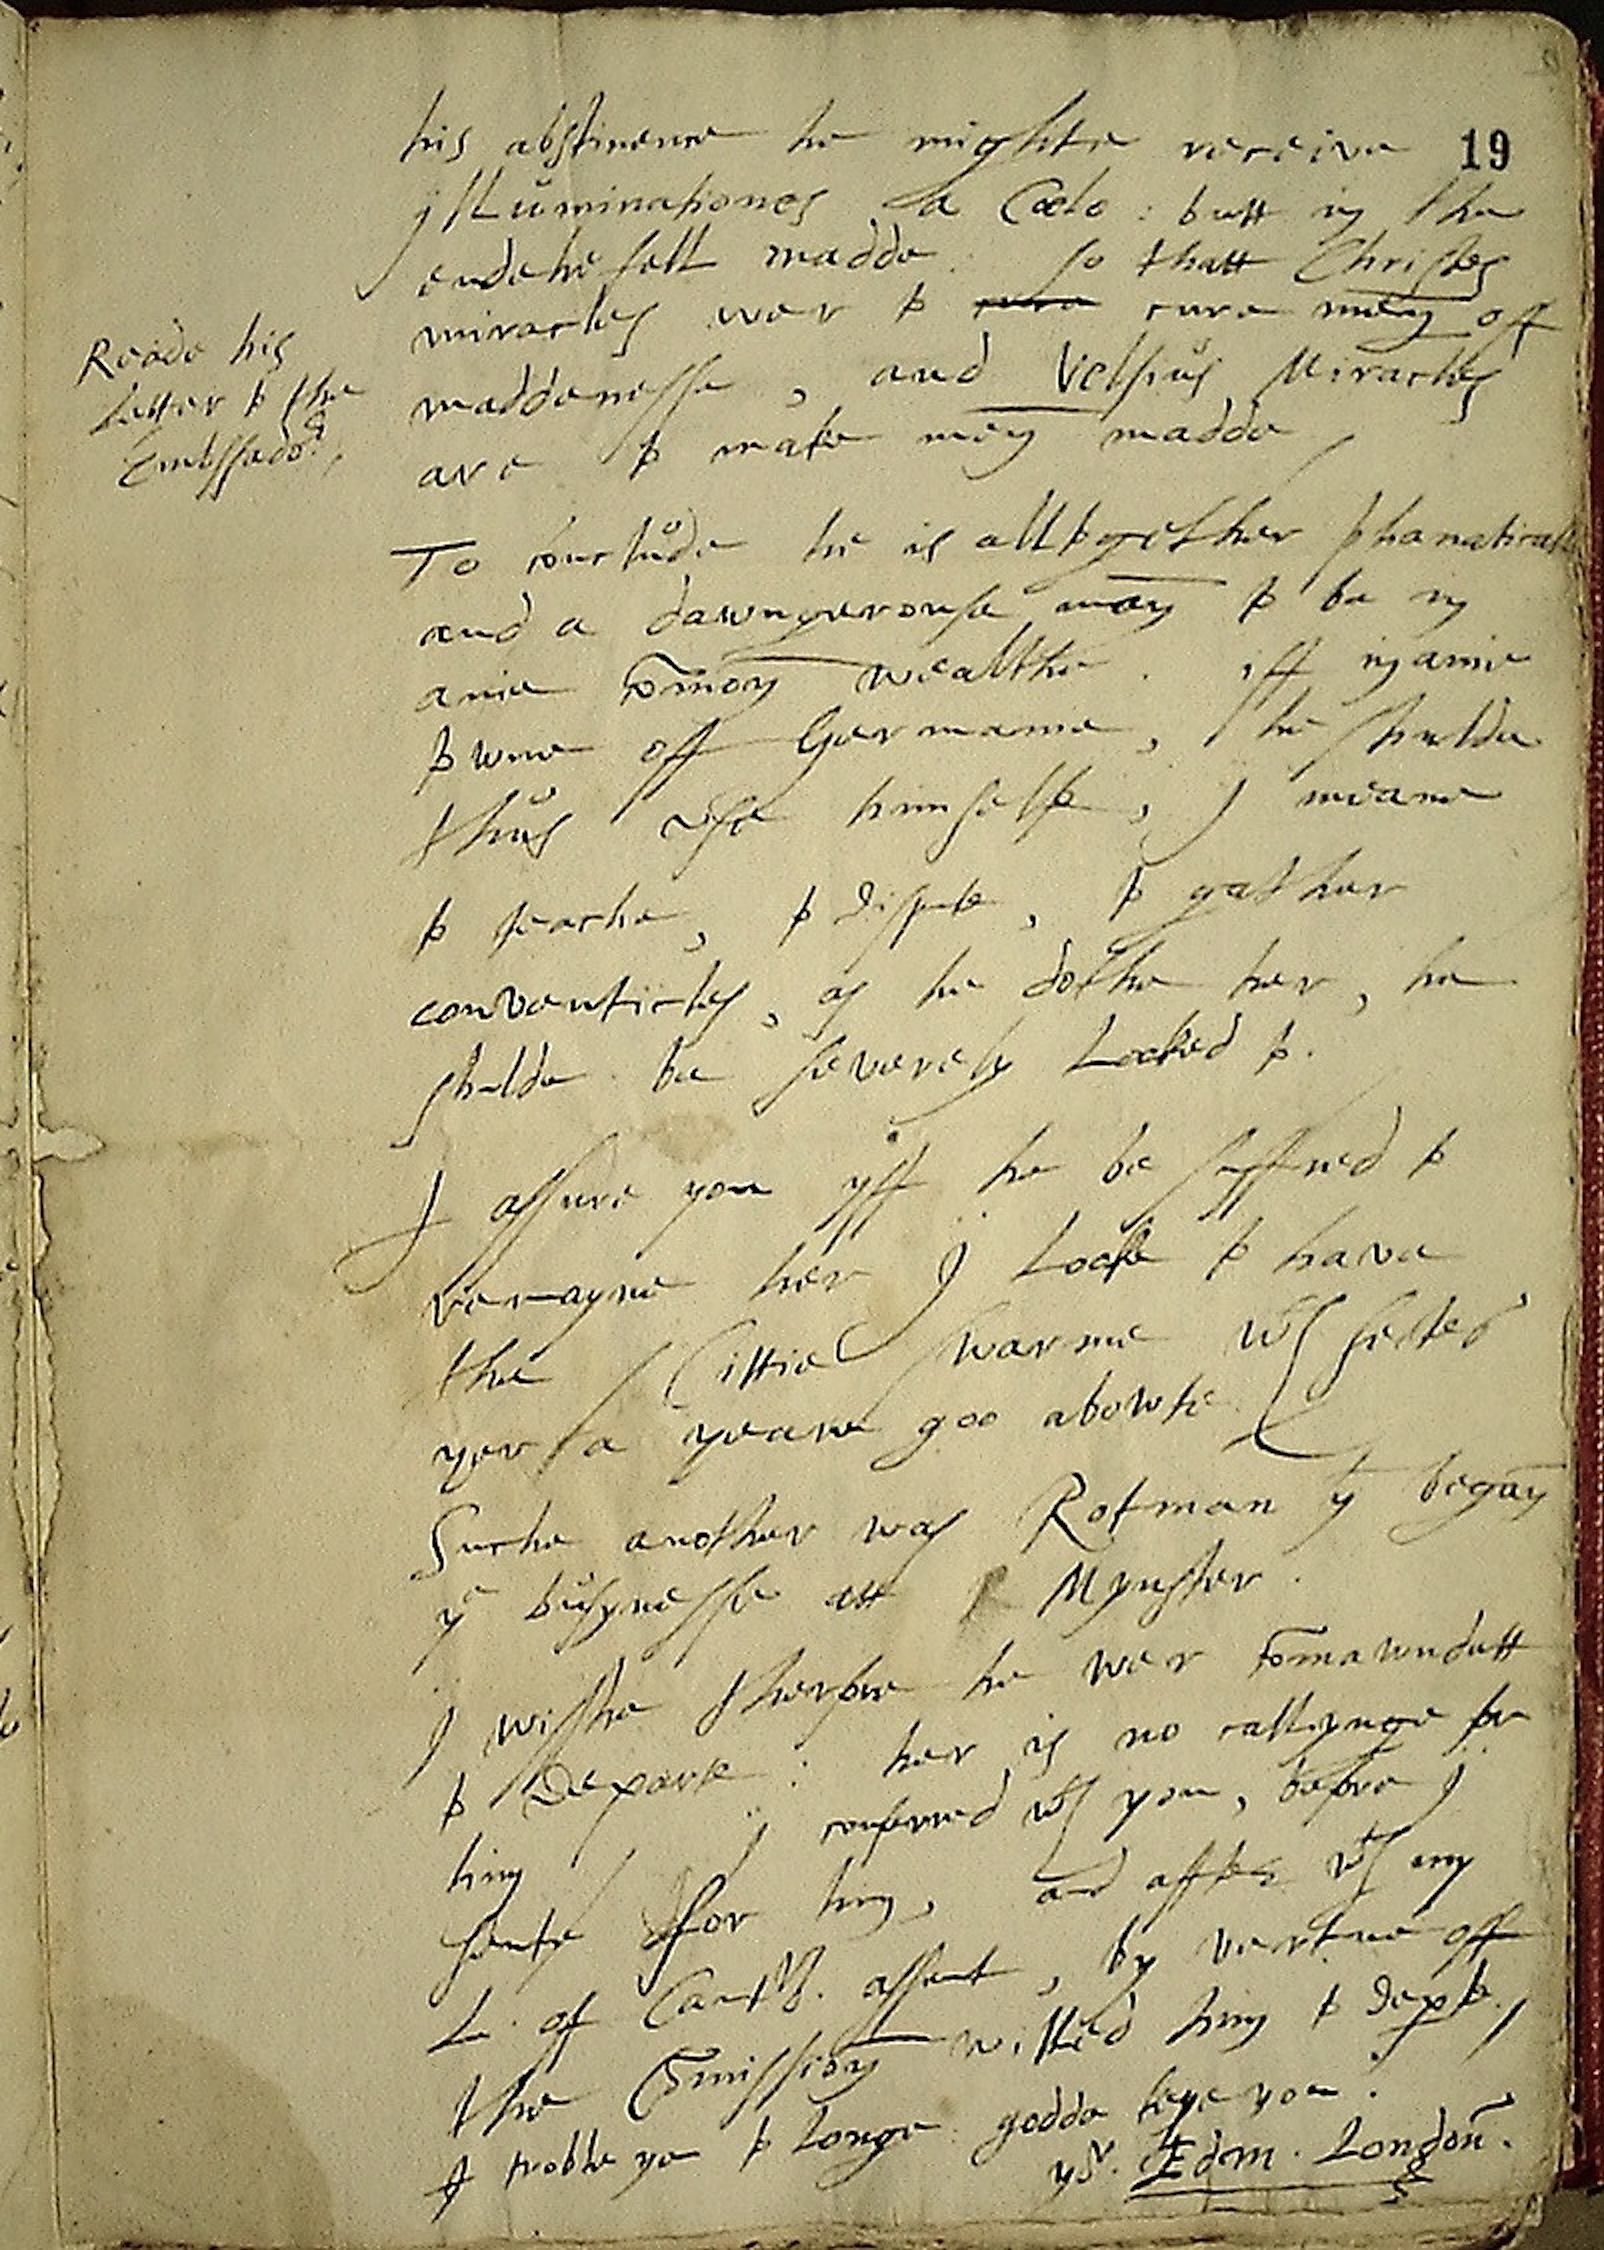 19
his abstinence he mighte receive
illuminationes a Cœlo : butt in the
ende he fell madde . so thatt Christes
miracles wer to cure men off
maddenesse , and Velsius Miracles
are to make men madde /
Reade his
letter to the
Embassado.r
To conclude he is alltogether phanaticall
and a dawngerouse man to be in
anie com̄on wealthe . iff in anie
towne off Germanie , he shulde
thus use himselfe , I meane
to teache , to dispute , to gather
conventicles , as he dothe her , he
shulde be severely Looked to .
I assure you yff he be suffred to
remayne her I Looke to have
the Cittie swarme wth sectes
yer a yeare goo abowte .
Suche another was Rotman yt began
ye busynesse att Mynster .
I wisshe therfore he wer com̄awndett
to Departe : her is no callynge for
him / I conferred wth you , before I
sente for him , and after wth my
L . of Cantb. assent , by vertue off
the Com̄ission willed him to depte /
I troble yo to Longe godde kepe you .
yor . Edm . London .